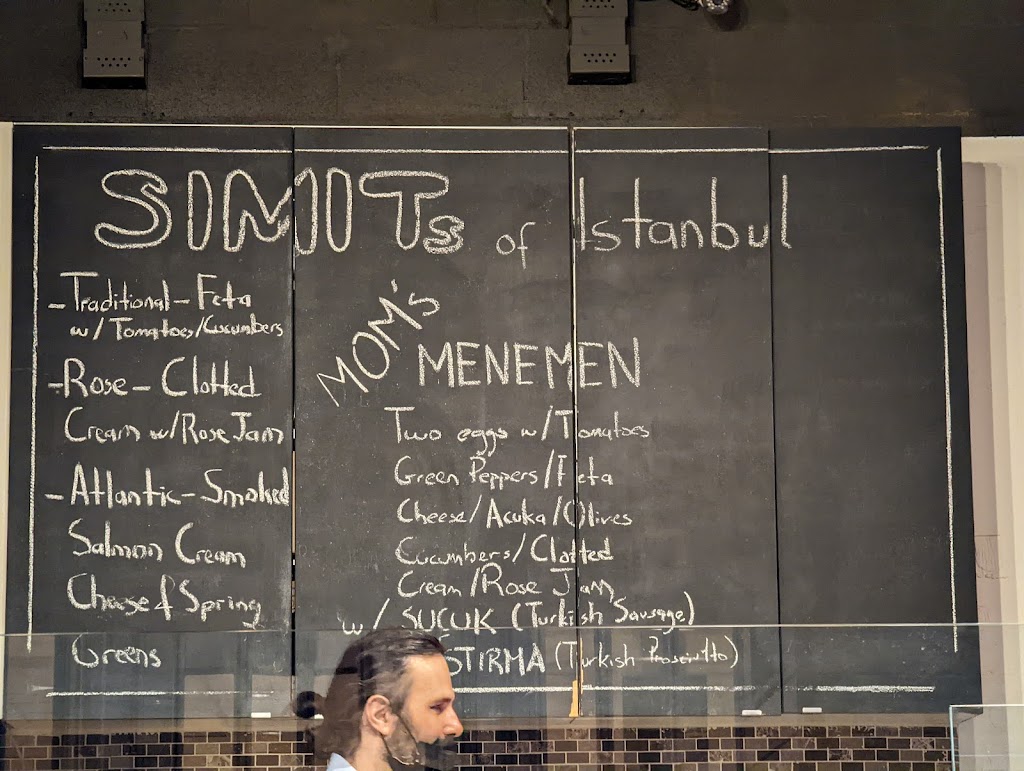 SIMITs of Istanbul
-Traditional-Feta
w/Tomatoes/Cucumbers
-Rose-Clotted
Cream w/Rose Jam
-Atlantic-Smoked
Salmon Cream
Cheese & Spring
Greens
MOM's
MENEMEN
Two eggs w/Tomatoes
Green Peppers/Feta
Cheese/Acuka/Olives
Cucumbers/Clotted
Cream/Rose Jam
w/ SUÇUK (Turkish Sausage)
STIRMA (Turkish Prosciutto)